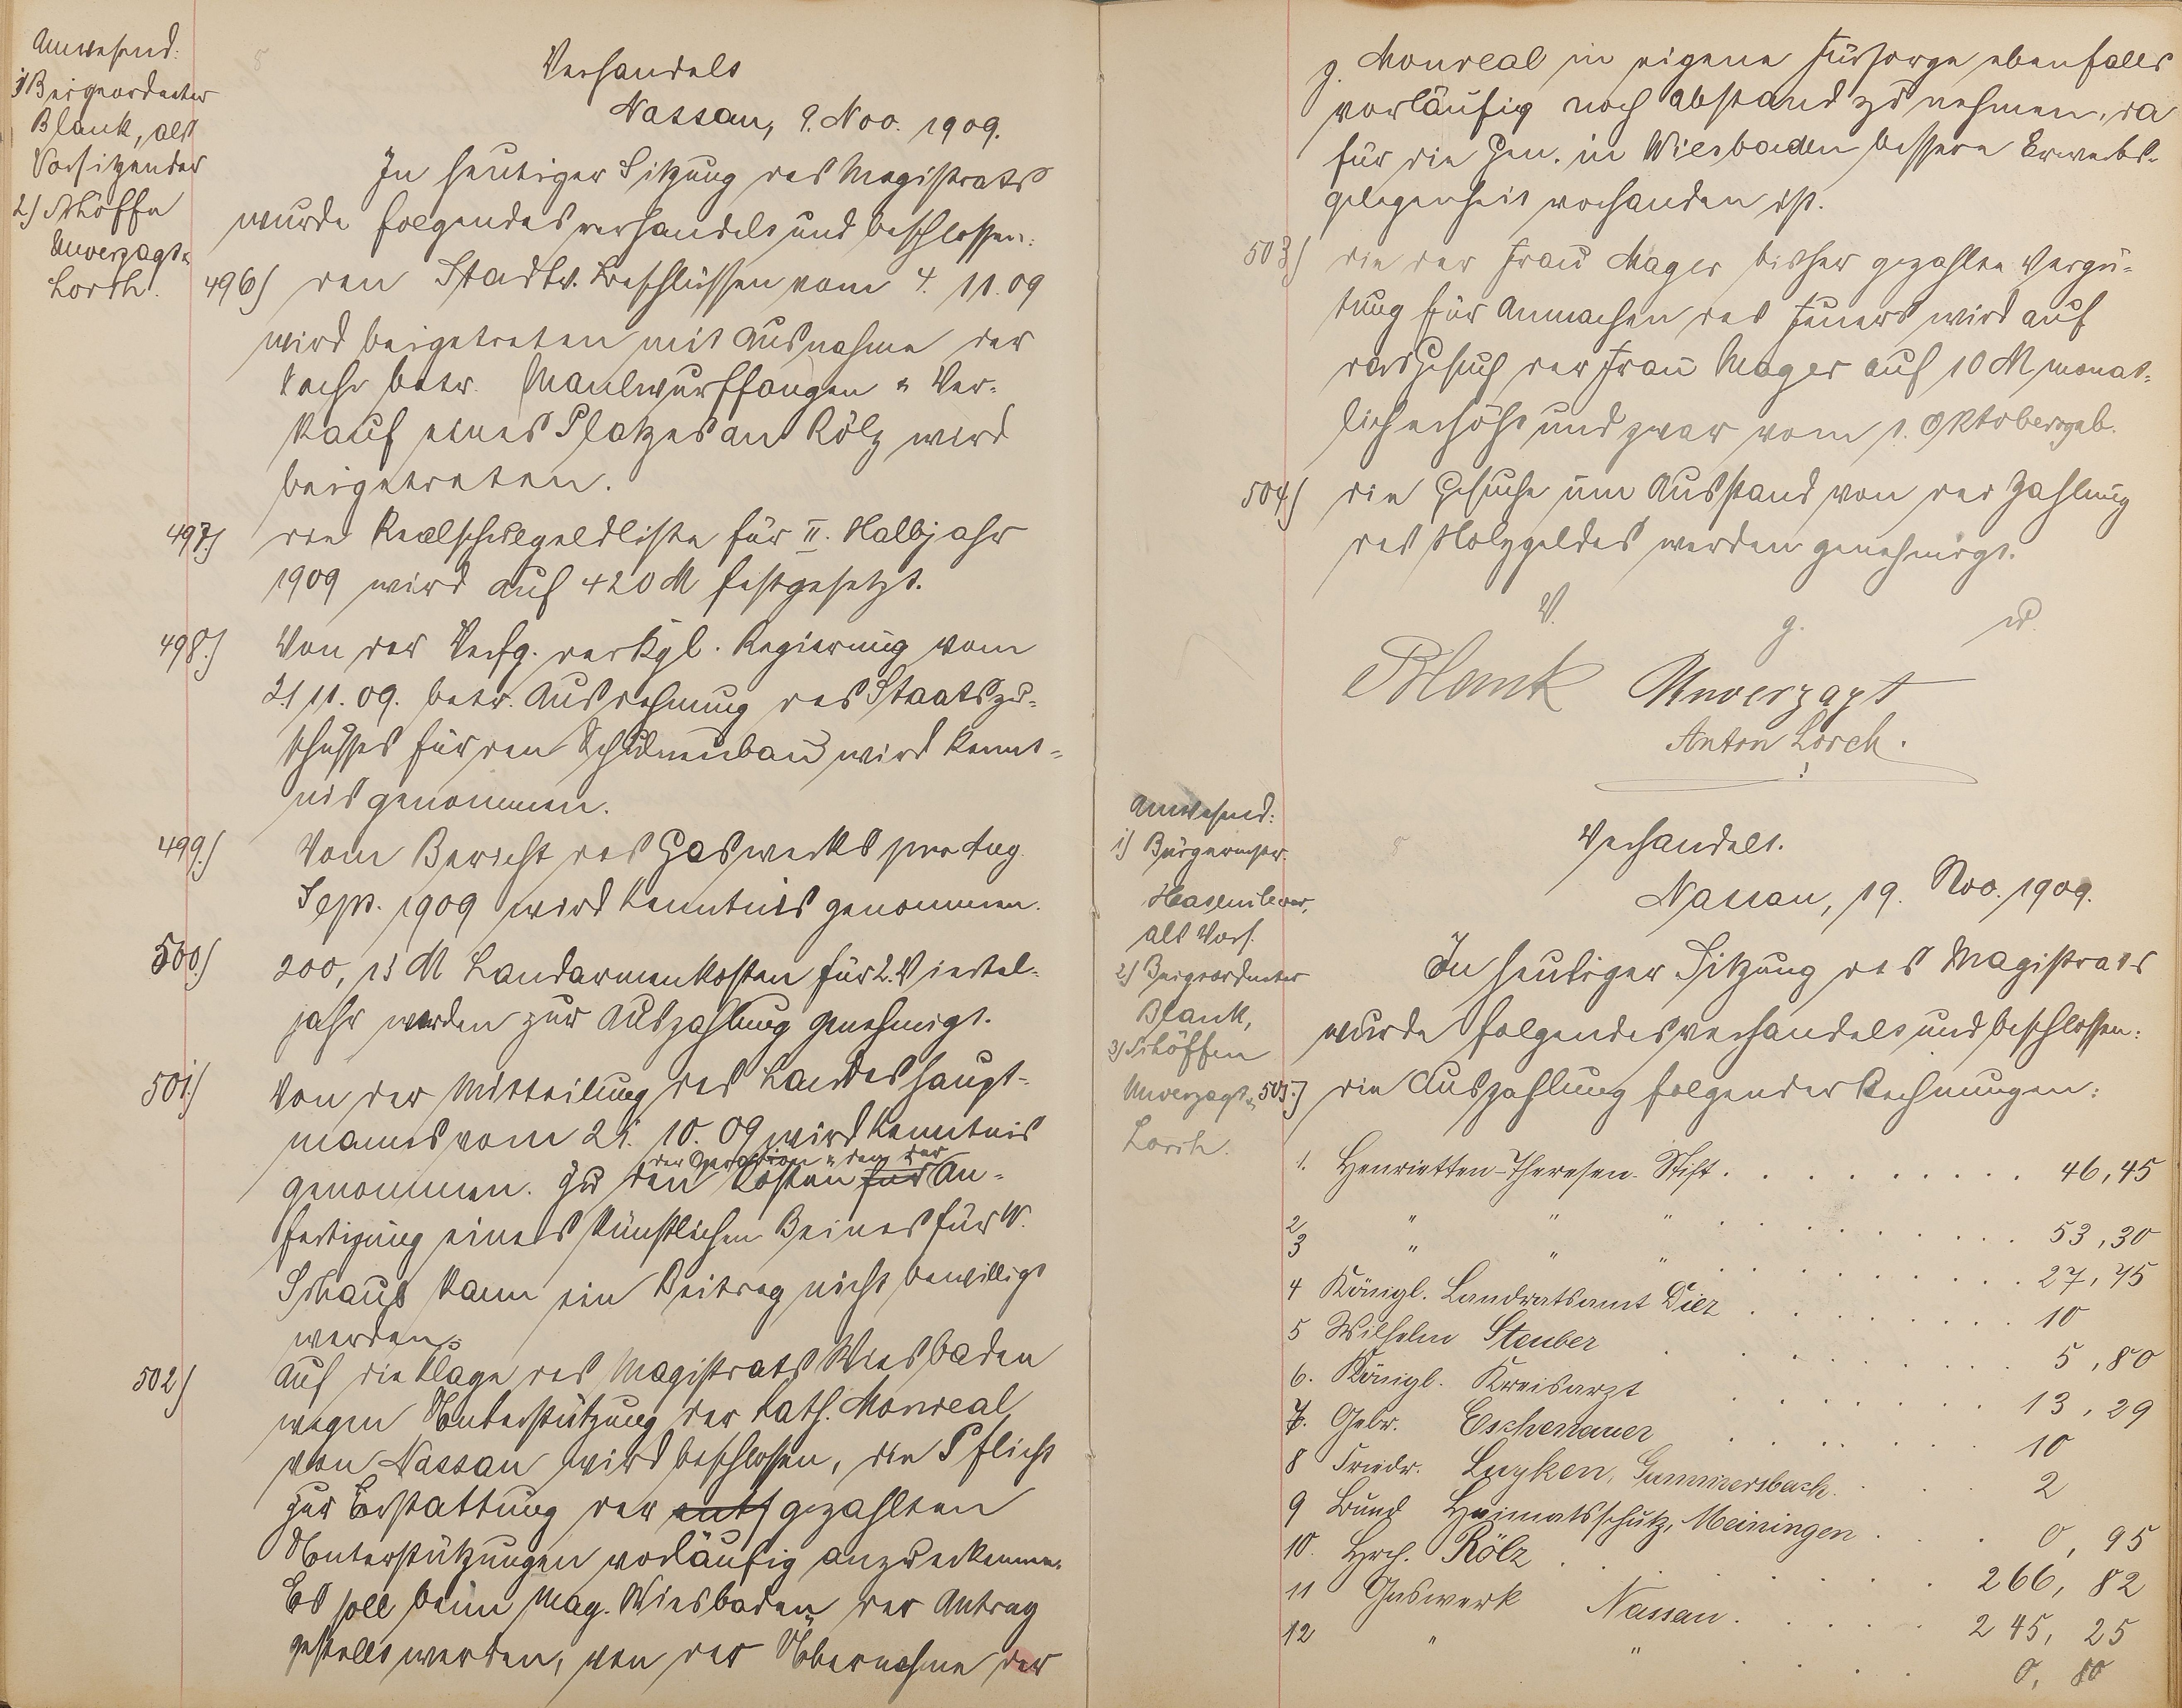 Anwesend:
1) Beigeordneter
Blank, als
Vorsitzender
2) Schöffe
Unverzagt u.
Lorch.
Verhandelt
Nassau, 9. Nov. 1909.
In heutiger Sitzung des Magistrats
wurde folgendes verhandelt und beschlossen:
496) den Stadtv. Beschlüssen vom 4. 11. 09
wird beigetreten mit Ausnahme der
Sache betr. Maulwurffangen u Ver-
kauf eines Platzes an Rölz wird
beigetreten.
497.) die Realschulgeldliste für II. Halbjahr
1909 wird auf 420 M festgesetzt.
498.) Von der Verfg. der Kgl. Regierung vom
2/11. 09. betr. Ausdehnung des Staatszu-
schusses für den Schulneubau wird Kennt-
nis genommen.
499.) Vom Bericht des Gaswerks pro Aug.
Sept. 1909 wird Kenntnis genommen.
500.) 200,13 M Landarmenkosten für 2. Viertel-
jahr werden zur Auszahlung genehmigt.
501.) Von der Mitteilung des Landeshaupt-
manns vom 25. 10. 09 wird Kenntnis
der Operation u den der
genommen. Zu den Kosten für An-
fertigung eines künstlichen Beines für W.
Schaus kann ein Beitrag nicht bewilligt
werden.
502) Auf die Klage des Magistrats Wiesbaden
wegen Unterstützung der Kath. Monreal
von Nassau wird beschlossen, die Pflicht
zur Erstattung der gezahlten
Unterstützungen vorläufig anzuerkennen.
Es soll beim Mag. Wiesbaden der Antrag
gestellt werden, von der Übernahme der
g. Monreal in eigene Fürsorge ebenfalls
vorläufig noch Abstand zu nehmen, da
für die Gen. in Wiesbaden bessere Erwerbs-
gelegenheit vorhanden ist.
503) die der Frau Mager bisher gezahlte Vergü-
tung für Anmachen des Feuers wird auf
das Gesuch der Frau Mager auf 10 M monat-
lich erhöht und zwar vom 1. Oktober ab.
504) die Gesuche um Ausstand von der Zahlung
des Holzgeldes werden genehmigt.
V. g. u.
Blank Unverzagt
Anton Lorch.
Anwesend:
1) Bürgermstr.
Hasenclever,
als Vors.
2) Beigeordneter
Blank,
3) Schöffen
Unverzagt u.
Lorch.
Verhandelt.
Nassau, 19. Nov. 1909.
In heutiger Sitzung des Magistrats
wurde folgendes verhandelt und beschlossen:
505.) die Auszahlung folgender Rechnungen:
1. Henrietten-Theresen-Stift . . . . . . . . . 46,45
2 " " " . . . . . . . . 53,30
3 " " " . . . . . . . . . 27,75
4 Königl. Landratsamt Diez . . . . . . . . 10
5 Wilhelm Steuber . . . . . . . . . 5,80
6. Königl. Kreisarzt . . . . . . . 13,29
7. Gebr. Eschenauer . . . . . . . 10
8 Friedr. Luyken, Gummersbach . . . . 2
9 Bund Heimatschutz, Meiningen . . . 0,95
10. Hrch. Rölz . . . . . . . 266,82
11 Gaswerk Nassau . . . . . 245,25
12 " " . . . . . 0,80